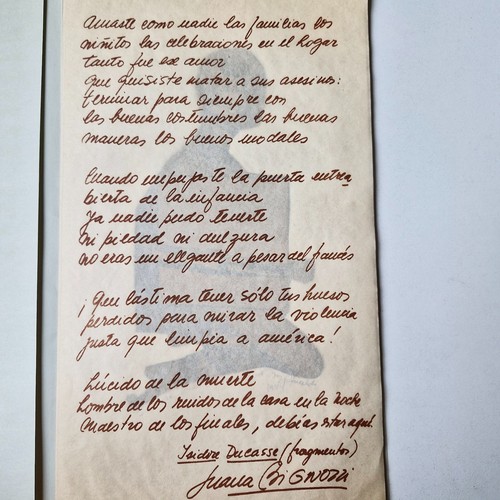 Amaste como nadie las familias los
niñitos las celebraciones en el hogar
tanto fue ese amor
que quisiste matar a sus asesinos:
terminar para siempre con
las buenas costumbres las buenas
maneras los buenos modales
Cuando empujaste la puerta entrea
bierta de la infancia
ya nadie pudo tenerte
ni piedad ni dulzura
no eras un elegante a pesar del francés
¡Qué lástima tener sólo tus huesos
perdidos para mirar la violencia
justa que limpia a américa!
Lúcido de la muerte
hombre de los ruidos de la casa en la noche
maestro de los finales, debías estar aquí.
Isidore Ducasse (fragmentos)
Juana Bignozzi